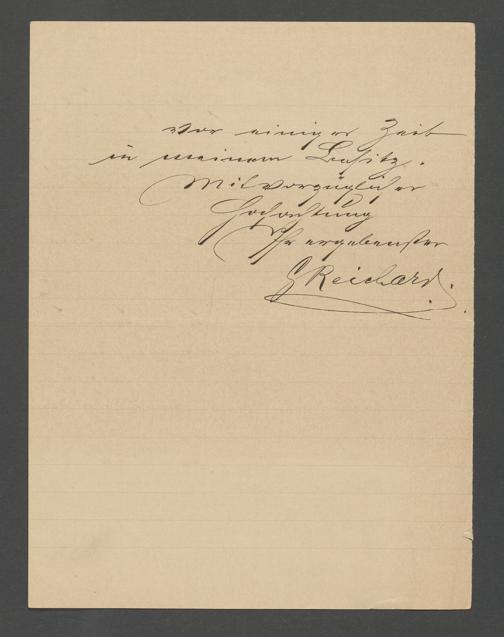 vor einiger Zeit
in meinem Besitz.
Mit vorzüglicher
Hochachtung
Ihr ergebenster
GReichard.